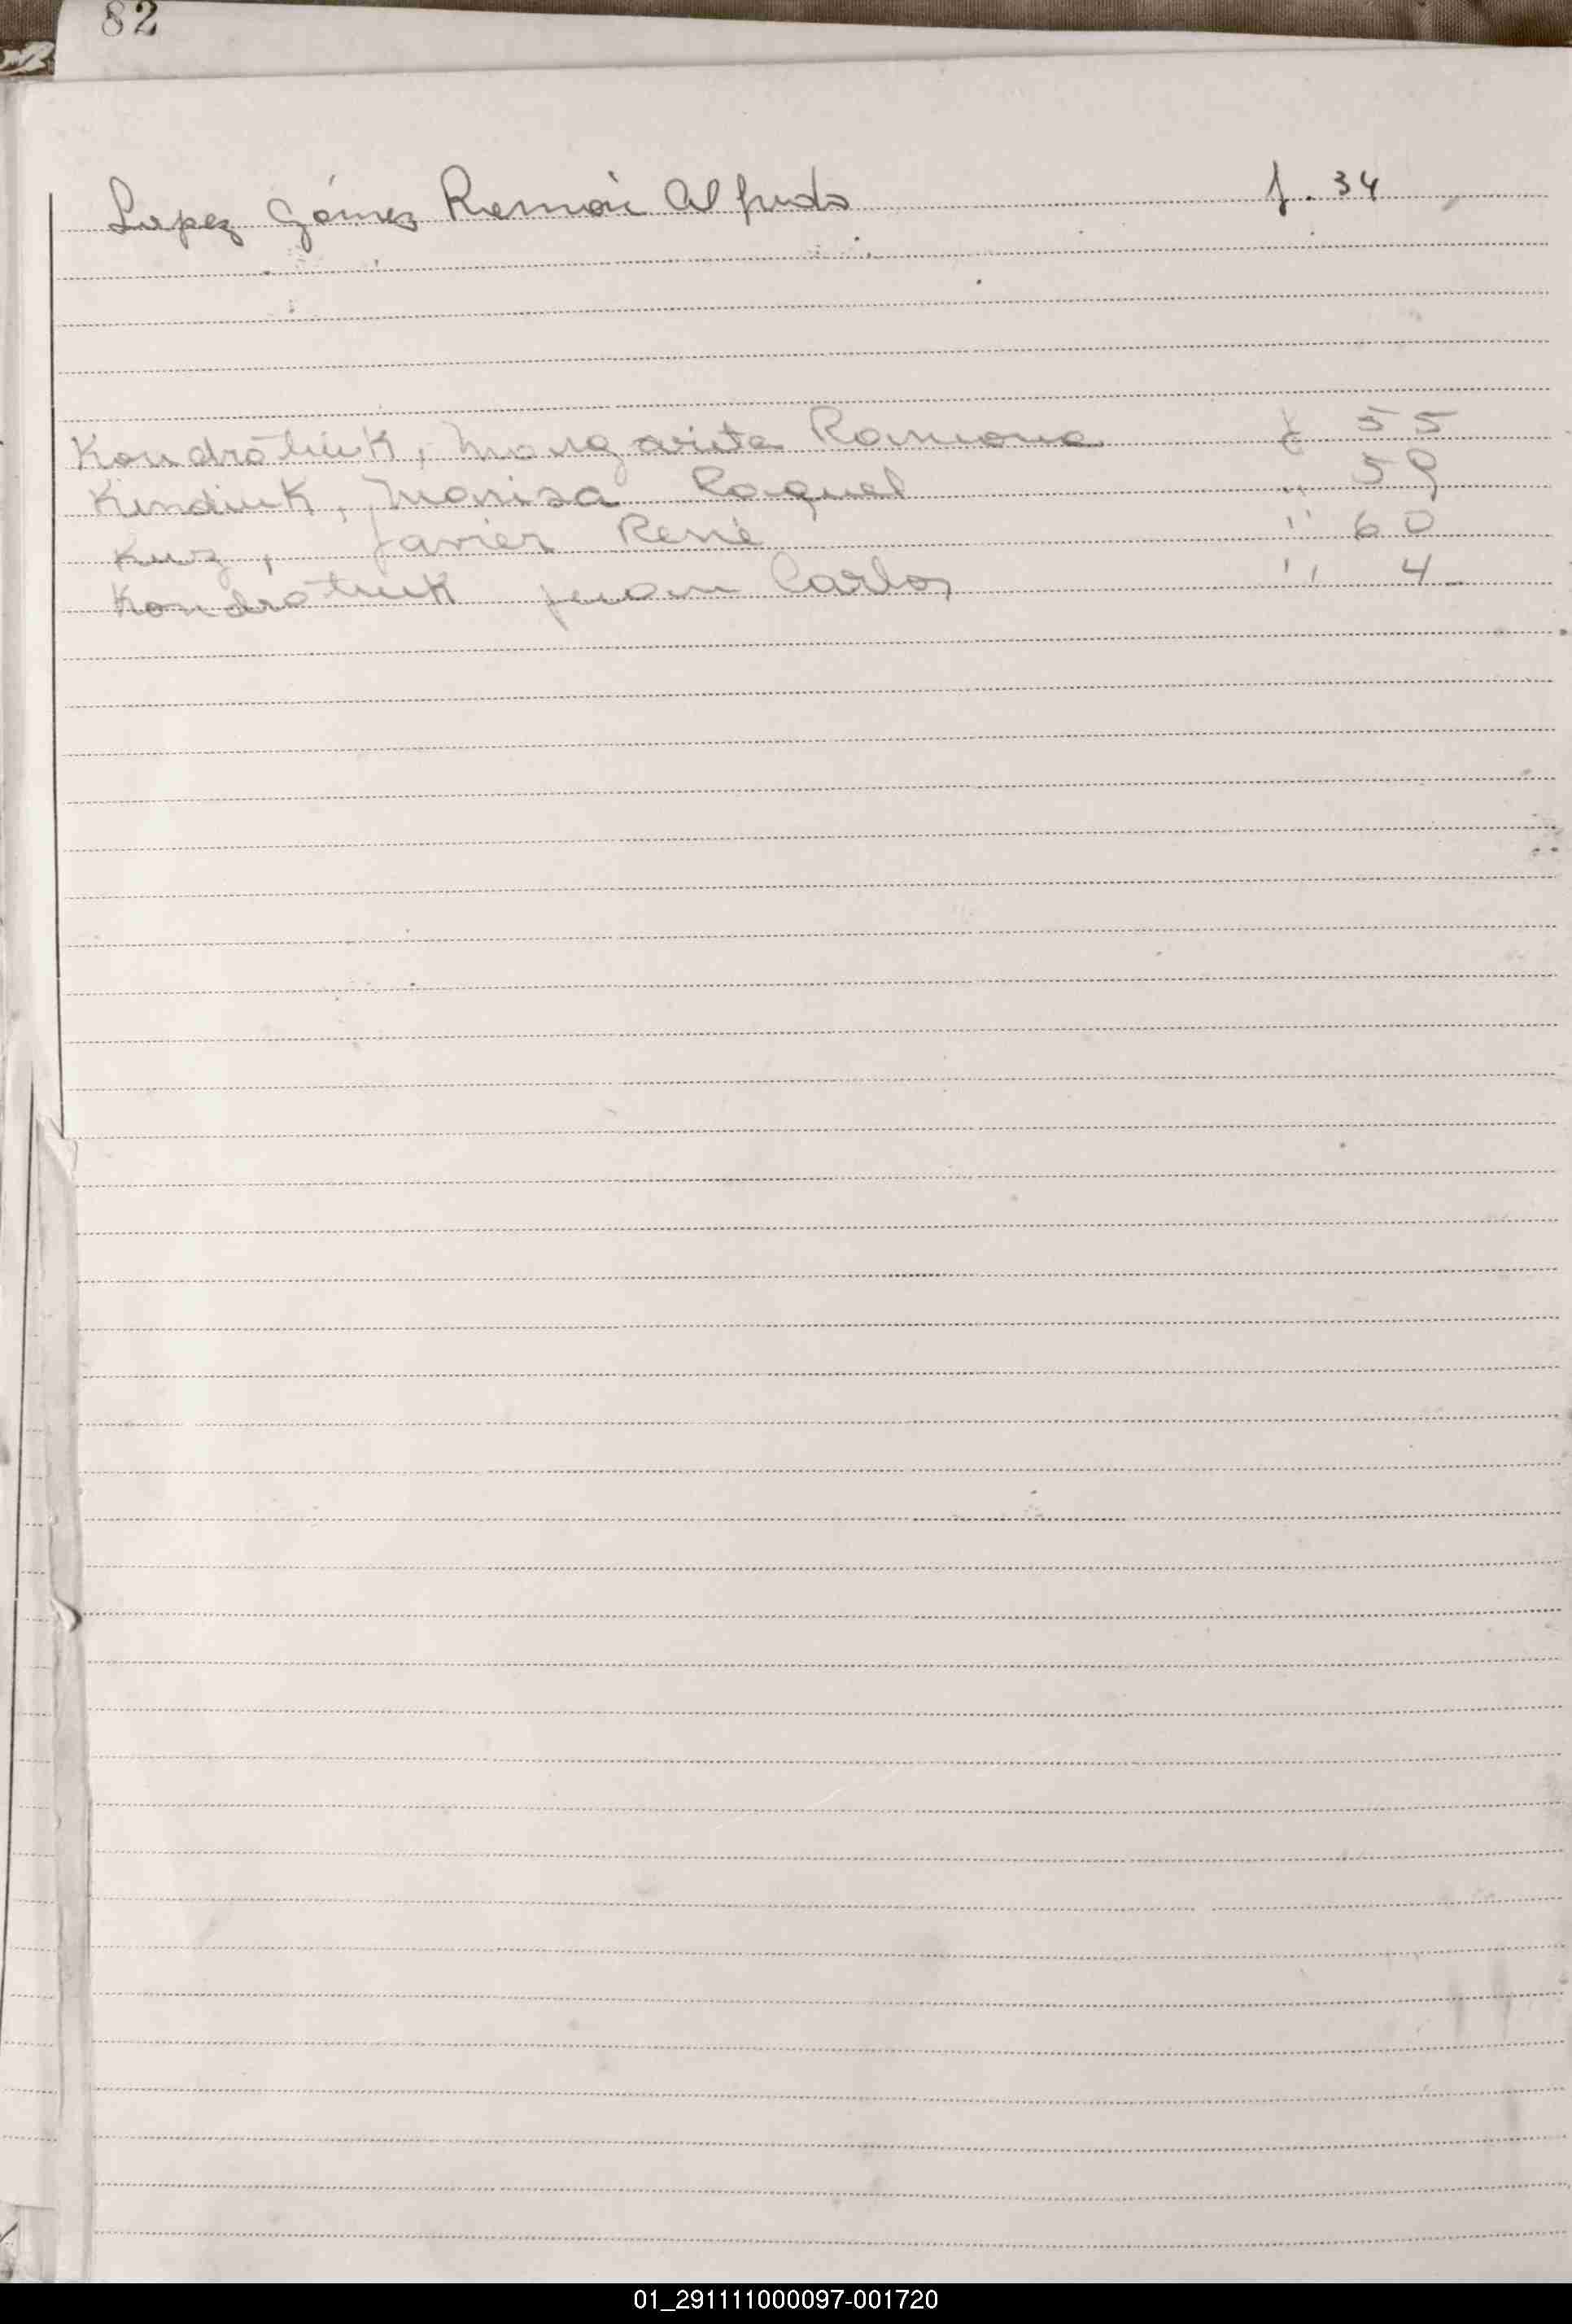 82
Lopez Gómez Ramón Alfredo f. 34
Kondratiuk, Margarita Ramona f 55
Kindiuk, Marisa Raquel " 59
Kuz, Javier René " 60
Kondratiuk Juan Carlos " 4
01_291111000097-001720